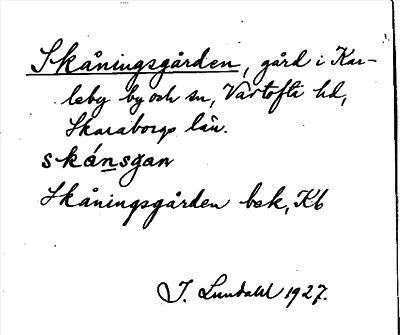 Skåningsgården, gård i Kar-
leby by och sn, Vartofta hd,
Skaraborgs län.
skánsgan
Skåningsgården bek, Kb
I. Lundahl 1927.